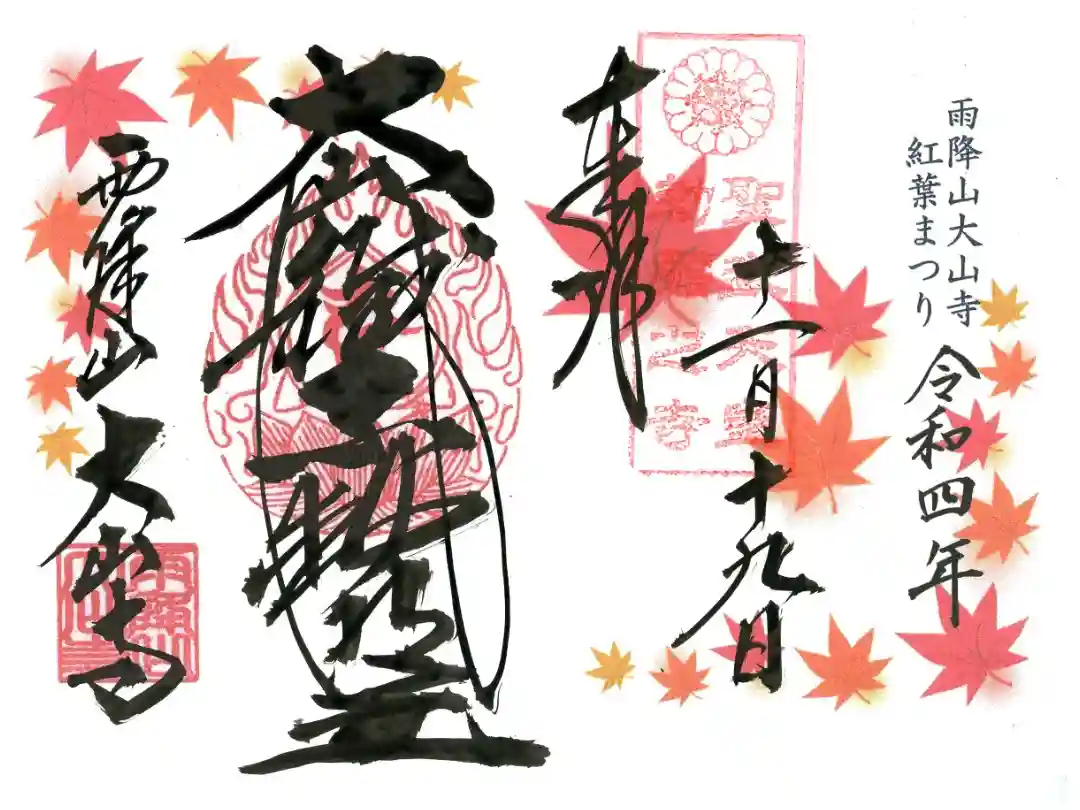 雨降山大山寺
紅葉まつり
令和四年
十一月十九日
聖武天皇
勅願之寺
奉拝
雨降山 大山寺